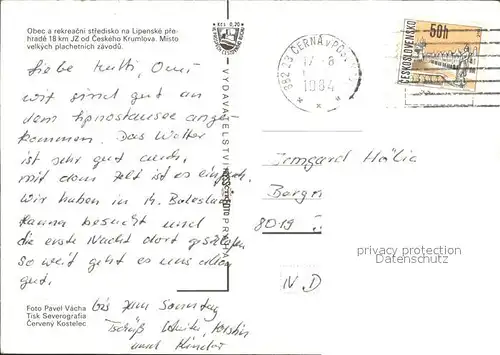 Obec a rekreační středisko na Lipenské pře-
hradě 18 km JZ od Českého Krumlova. Místo
velkých plachetních závodů.
Kčs 0,20
ČESKOSLOVENSKO
50h
382 23 ČERNÁ v POŠ
17.-8
1984
Liebe Mutti, Omi
wir sind gut an
dem Lipnostausee ange
kommen. Das Wetter
ist sehr gut auch,
mit dem Zelt ist es einfach.
Wir haben in M. Boleslav
Hanna besucht und
die erste Nacht dort geschlafen
so weit geht es uns allen
gut.
bis zum Sonntag
Tschüß
und Kinder
VYDAVATELSTVÍ PRESSFOTO PRAHA
Irmgard
8019
N.D
privacy protection
AnsichtskartenVD
Foto Pavel Vácha
Tisk Severografia
Červený Kostelec